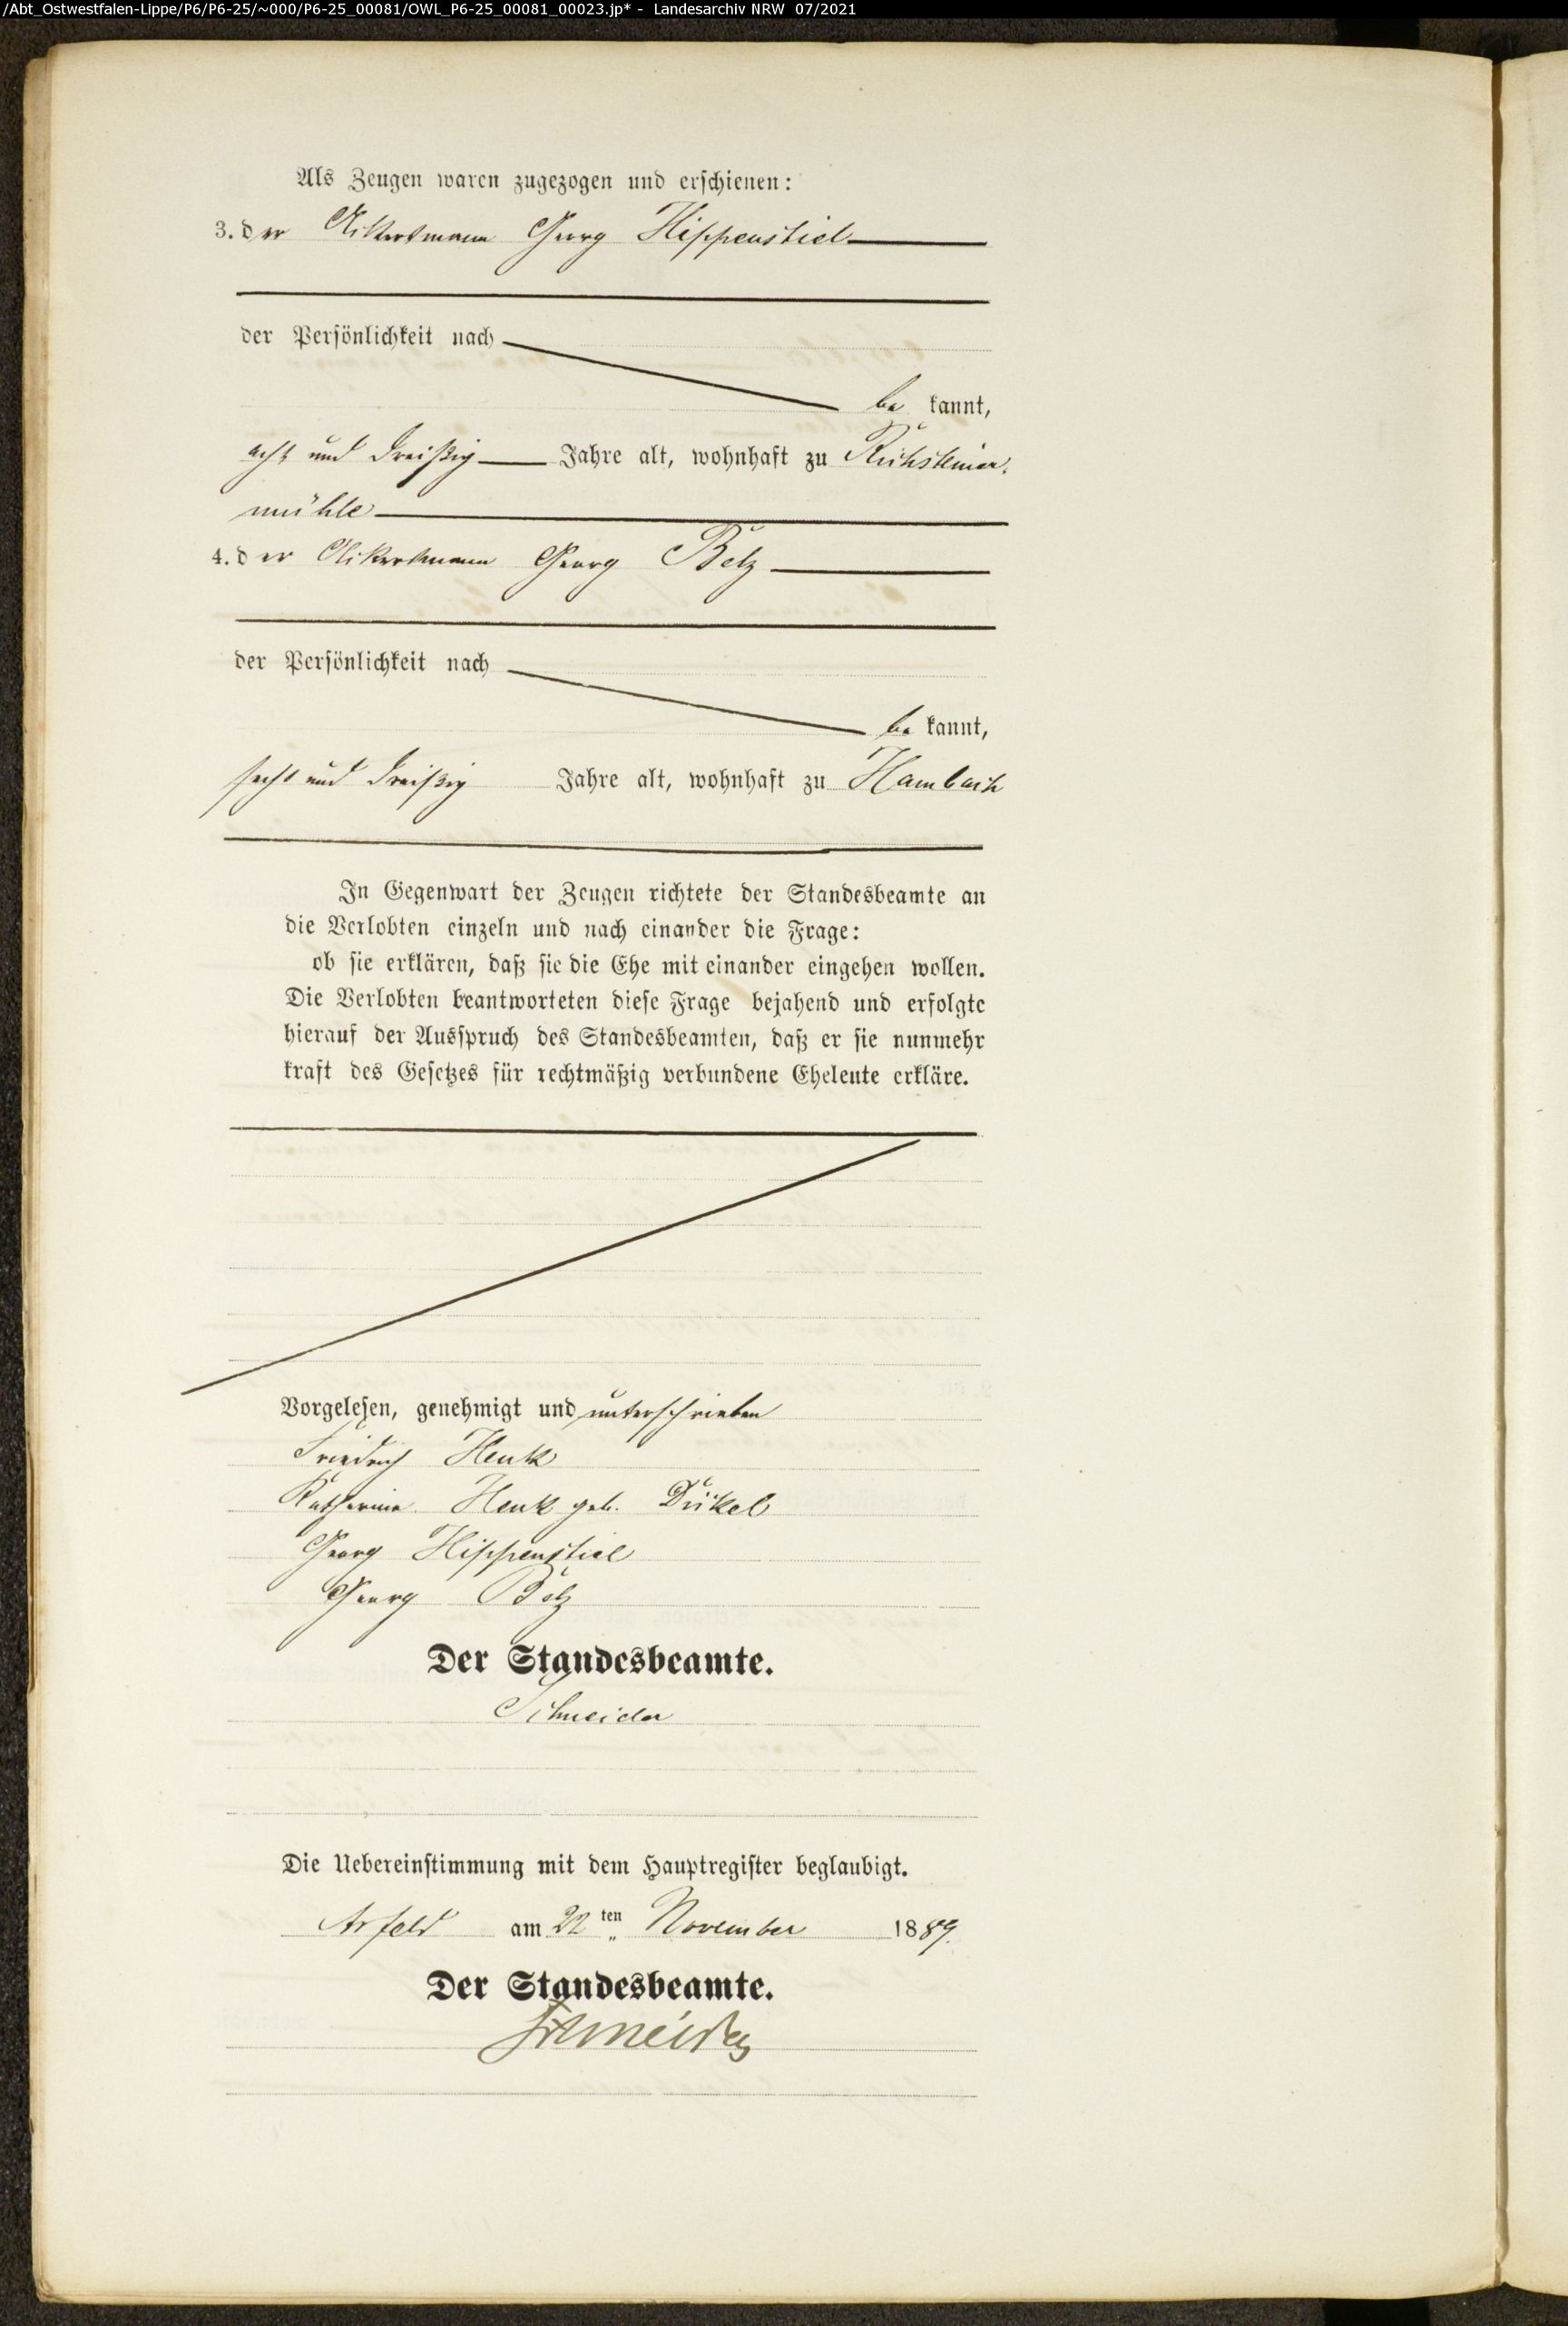 /Abt_Ostwestfalen-Lippe/P6/P6-25/~000/P6-25_00081/OWL_P6-25_00081_00023.jp* - Landesarchiv NRW 07/2021
Als Zeugen waren zugezogen und erschienen:
3. der Ackersmann Georg Hippenstiel
der Persönlichkeit nach
be kannt,
acht und dreißig Jahre alt, wohnhaft zu
mühle
4. der Ackersmann Georg Belz
der Persönlichkeit nach
be kannt,
sechs und dreißig Jahre alt, wohnhaft zu Hambach
In Gegenwart der Zeugen richtete der Standesbeamte an
die Verlobten einzeln und nach einander die Frage:
ob sie erklären, daß sie die Ehe mit einander eingehen wollen.
Die Verlobten beantworteten diese Frage bejahend und erfolgte
hierauf der Ausspruch des Standesbeamten, daß er sie nunmehr
kraft des Gesetzes für rechtmäßig verbundene Eheleute erkläre.
Vorgelesen, genehmigt und unterschrieben
Friedrich Henk
Katharina Henk geb. Dickel
Georg Hippenstiel
Georg Belz
Der Standesbeamte.
Schneider
Die Uebereinstimmung mit dem Hauptregister beglaubigt.
Arfeld am 22 ten November 1889.
Der Standesbeamte.
Schneider